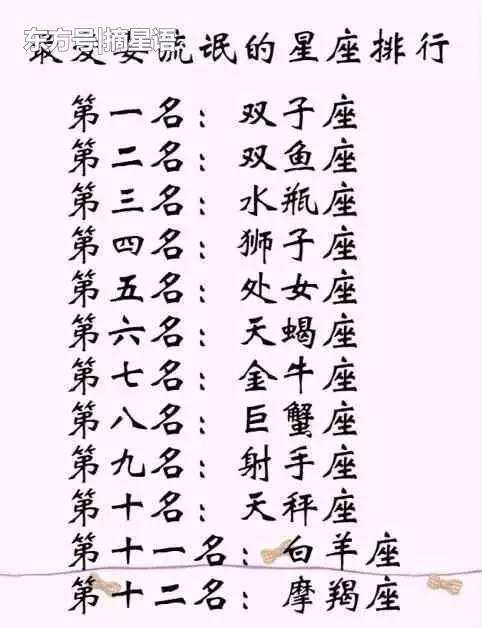 东方号|摘星语
最爱耍流氓的星座排行
第一名：双子座
第二名：双鱼座
第三名：水瓶座
第四名：狮子座
第五名：处女座
第六名：天蝎座
第七名：金牛座
第八名：巨蟹座
第九名：射手座
第十名：天秤座
第十一名：白羊座
第十二名：摩羯座